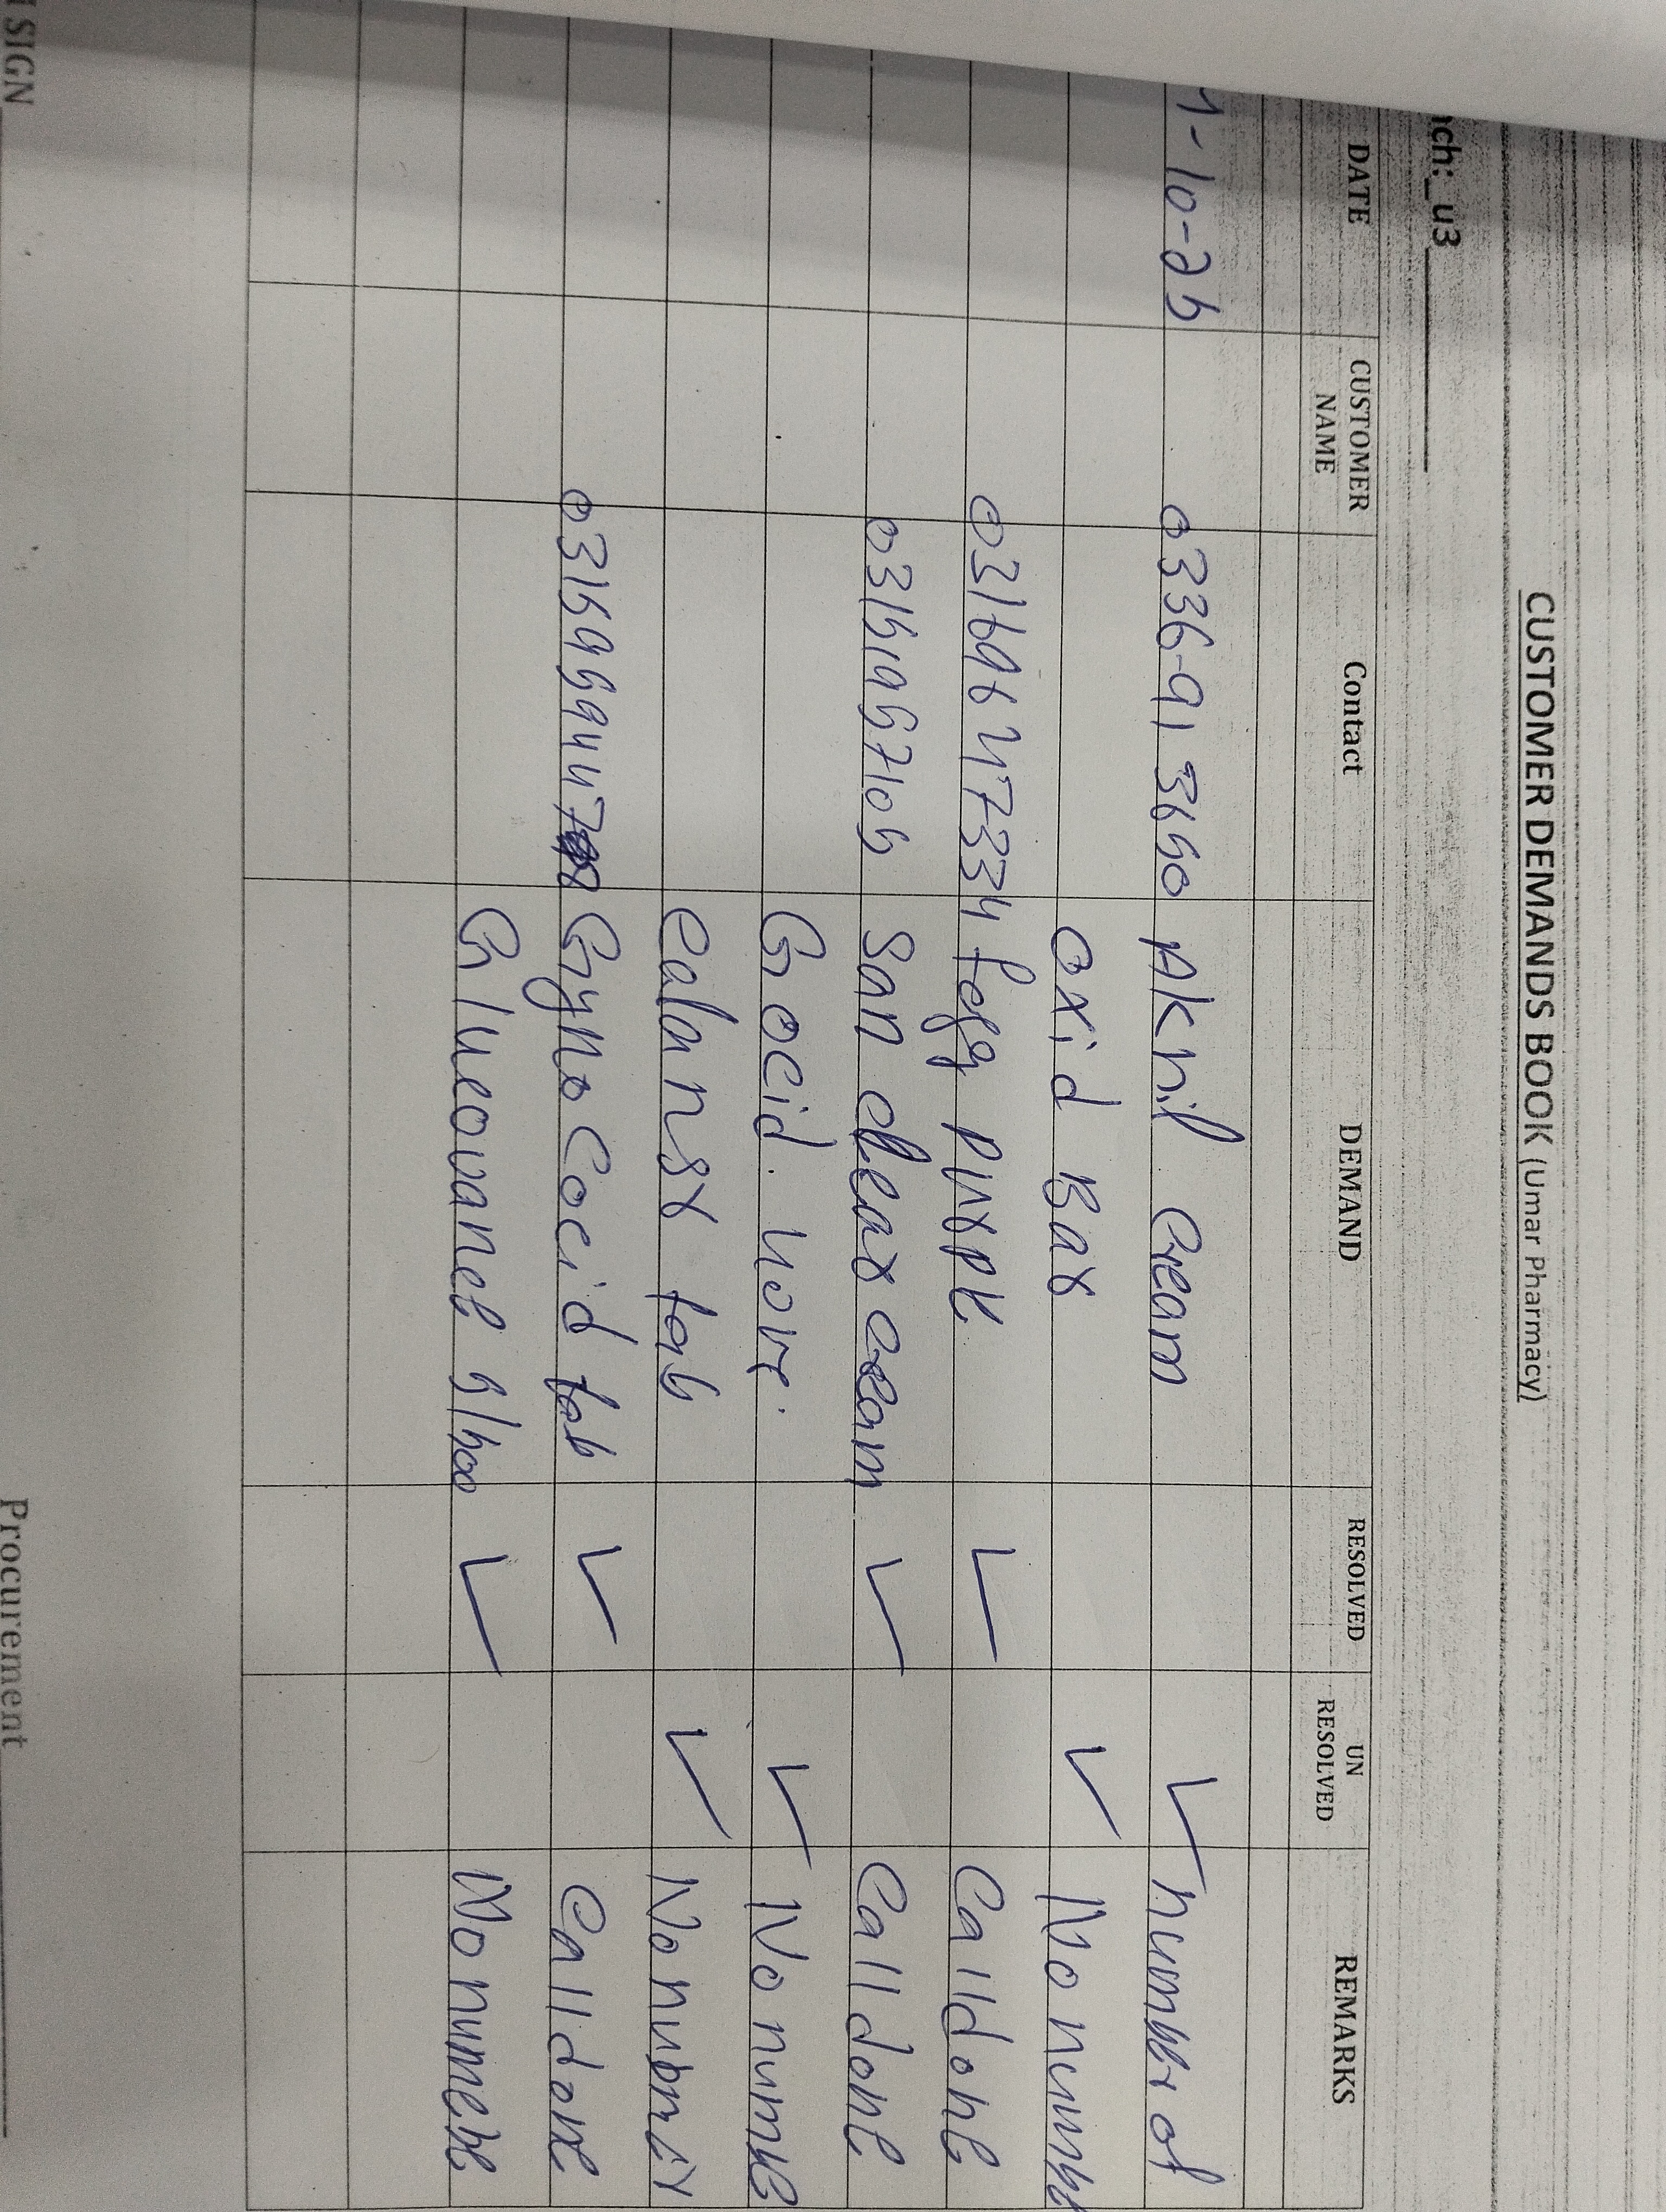 CUSTOMER DEMANDS BOOK (Umar Pharmacy)
nch:_u3
DATE CUSTOMER NAME Contact DEMAND RESOLVED UN RESOLVED REMARKS
4-10-25 0336-91 3650 Aknil Cream ✓ number of
oxid Bar ✓ No numbe
03169647334 Fogg purpl ✓ Call done
03151957105 San clear cream ✓ Call done
Gocid. ✓ No numbe
tab ✓ No
0315959447 Gyno Cocid tab ✓ Call done
Glucovance 5/500 ✓ No numebe
SIGN Procurement